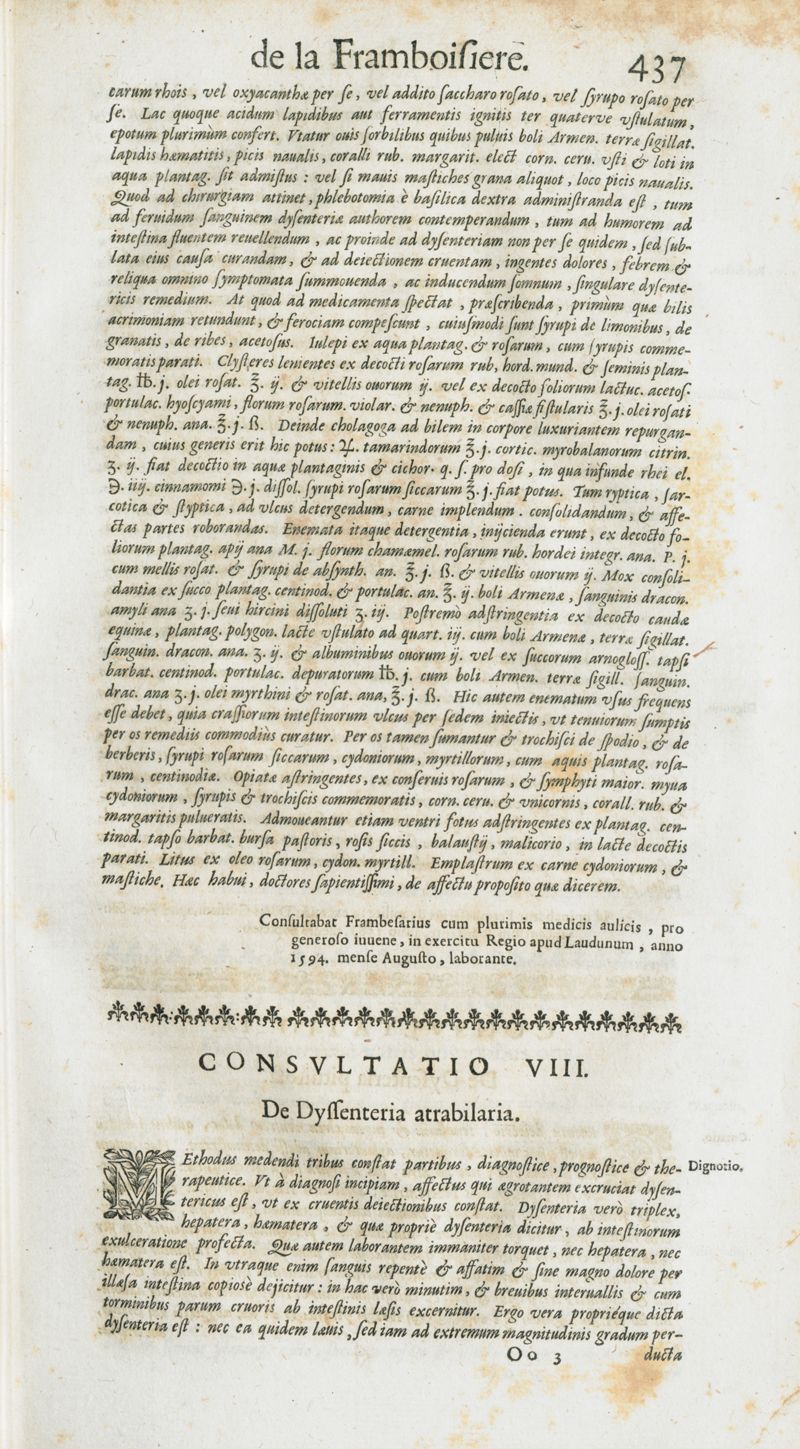 de la Framboiſiere. 437
earum rhois, vel oxyacanthæ per ſe, vel addito ſaccharo roſato, vel ſyrupo roſato per
ſe. Lac quoque acidum lapidibus aut ferramentis ignitis ter quaterve vſtulatum,
epotum plurimùm confert. Vtatur ouis ſorbilibus quibus puluis boli Armen. terræ ſigillat.
lapidis hæmatitis, picis naualis, coralli rub. margarit. elect corn. ceru. vſti & loti in
aqua plantag. ſit admiſtus : vel ſi mauis maſtiches grana aliquot, loco picis naualis.
Quod ad chirurgiam attinet, phlebotomia è baſilica dextra adminiſtranda eſt, tum
ad feruidum ſanguinem dyſenteriæ authorem contemperandum, tum ad humorem ad
inteſtina fluentem reuellendum, ac proinde ad dyſenteriam non per ſe quidem, ſed ſub-
lata eius cauſa curandam, & ad deiectionem cruentam, ingentes dolores, febrem &
reliqua omnino ſymptomata ſummouenda, ac inducendum ſomnum, ſingulare dyſente-
ricis remedium. At quod ad medicamenta ſpectat, præſcribenda, primùm quæ bilis
acrimoniam retundunt, & ferociam compeſcunt, cuiuſmodi ſunt ſyrupi de limonibus, de
granatis, de ribes, acetoſus. Iulepi ex aqua plantag. & roſarum, cum ſyrupis comme-
moratis parati. Clyſteres lenientes ex decocti roſarum rub, hord. mund. & ſeminis plan-
tag. ℔. j. olei roſat. ℥. ij. & vitellis ouorum ij. vel ex decocto foliorum lactuc. acetoſ.
portulac. hyoſcyami, florum roſarum. violar. & nenuph. & caſſiæ fiſtularis ℥. j. olei roſati
& nenuph. ana. ℥. j. ß. Deinde cholagoga ad bilem in corpore luxuriantem repurgan-
dam, cuius generis erit hic potus : ♃. tamarindorum ℥. j. cortic. myrobalanorum citrin.
ʒ. ij. fiat decoctio in aqua plantaginis & cichor. q. ſ. pro doſi, in qua infunde rhei el.
℈. iiij. cinnamomi ℈. j. diſſol. ſyrupi roſarum ſiccarum ℥. j. fiat potus. Tum ryptica, ſar-
cotica & ſtyptica, ad vlcus detergendum, carne implendum. conſolidandum, & affe-
ctas partes roborandas. Enemata itaque detergentia, inijcienda erunt, ex decocto fo-
liorum plantag. apij ana M. j. florum chamæmel. roſarum rub. hordei integr. ana. P. j.
cum mellis roſat. & ſyrupi de abſynth. an. ℥. j. ß. & vitellis ouorum ij. Mox conſoli-
dantia ex ſucco plantag. centinod. & portulac. an. ℥. ij. boli Armenæ, ſanguinis dracon.
amyli ana ʒ. j. ſeui hircini diſſoluti ʒ. iij. Poſtremò adſtringentia ex decocto caudæ
equinæ, plantag. polygon. lacte vſtulato ad quart. iij. cum boli Armenæ, terræ ſigillat.
ſanguin. dracon. ana. ʒ. ij. & albuminibus ouorum ij. vel ex ſuccorum arnogloſſ. tapſi
barbat. centinod. portulac. depuratorum ℔. j. cum boli Armen. terræ ſigill. ſanguin.
drac. ana ʒ. j. olei myrthini & roſat. ana, ℥. j. ß. Hic autem enematum vſus frequens
eſſe debet, quia craſſiorum inteſtinorum vlcus per ſedem iniectis, vt tenuiorum ſumptis
per os remediis commodiùs curatur. Per os tamen ſumantur & trochiſci de ſpodio, & de
berberis, ſyrupi roſarum ſiccarum, cydoniorum, myrtillorum, cum aquis plantag. roſa-
rum, centinodiæ. Opiatæ aſtringentes, ex conſeruis roſarum, & ſymphyti maior. myua
cydoniorum, ſyrupis & trochiſcis commemoratis, corn. ceru. & vnicornis, corall. rub. &
margaritis pulueratis. Admoueantur etiam ventri fotus adſtringentes ex plantag. cen-
tinod. tapſo barbat. burſa paſtoris, roſis ſiccis, balauſtij, malicorio, in lacte decoctis
parati. Litus ex oleo roſarum, cydon. myrtill. Emplaſtrum ex carne cydoniorum, &
maſtiche. Hæc habui, doctores ſapientiſſimi, de affectu propoſito quæ dicerem.
Conſultabat Frambeſarius cum plurimis medicis aulicis, pro
generoſo iuuene, in exercitu Regio apud Laudunum, anno
1594. menſe Auguſto, laborante.
CONSVLTATIO VIII.
De Dyſſenteria atrabilaria.
MEthodus medendi tribus conſtat partibus, diagnoſtice, prognoſtice & the- Dignotio.
rapeutice. Vt à diagnoſi incipiam, affectus qui ægrotantem excruciat dyſen-
tericus eſt, vt ex cruentis deiectionibus conſtat. Dyſenteria verò triplex,
hepatera, hæmatera, & quæ propriè dyſenteria dicitur, ab inteſtinorum
exulceratione profecta. Quæ autem laborantem immaniter torquet, nec hepatera, nec
hæmatera eſt. In vtraque enim ſanguis repentè & affatim & ſine magno dolore per
illæſa inteſtina copiosè dejicitur : in hac verò minutim, & breuibus interuallis & cum
torminibus parum cruoris ab inteſtinis læſis excernitur. Ergo vera propriéque dicta
dyſenteria eſt : nec ea quidem læuis, ſed iam ad extremum magnitudinis gradum per-
Oo 3 ducta